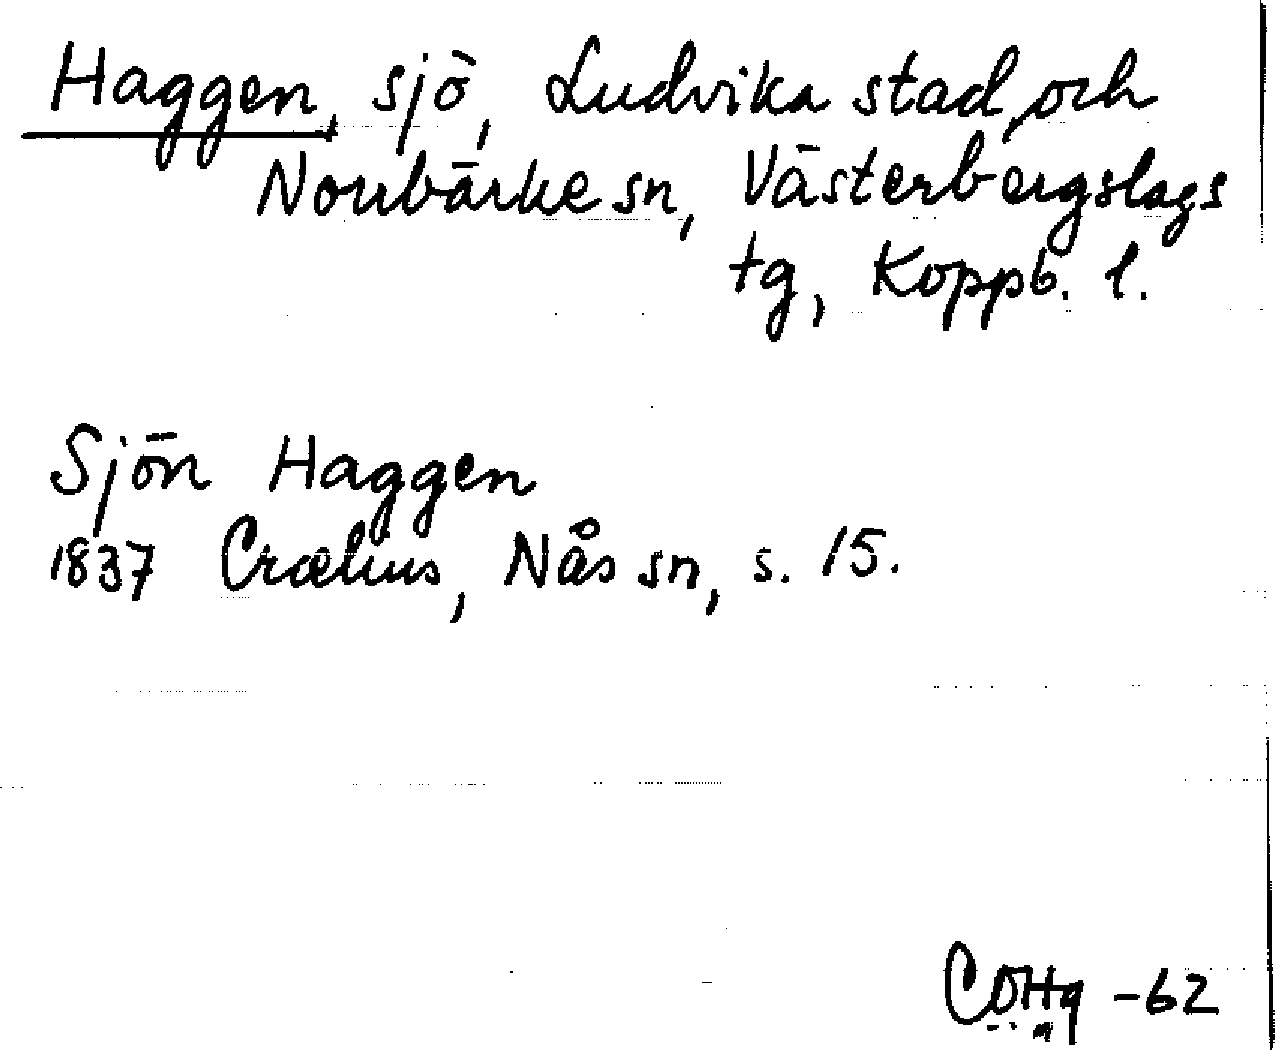 Haggen, sjö, Ludvika stad och
Norrbärke sn, Västerbergslags
tg, Koppb. l.
Sjön Haggen
1837 Crælius, Nås sn, s. 15.
-62